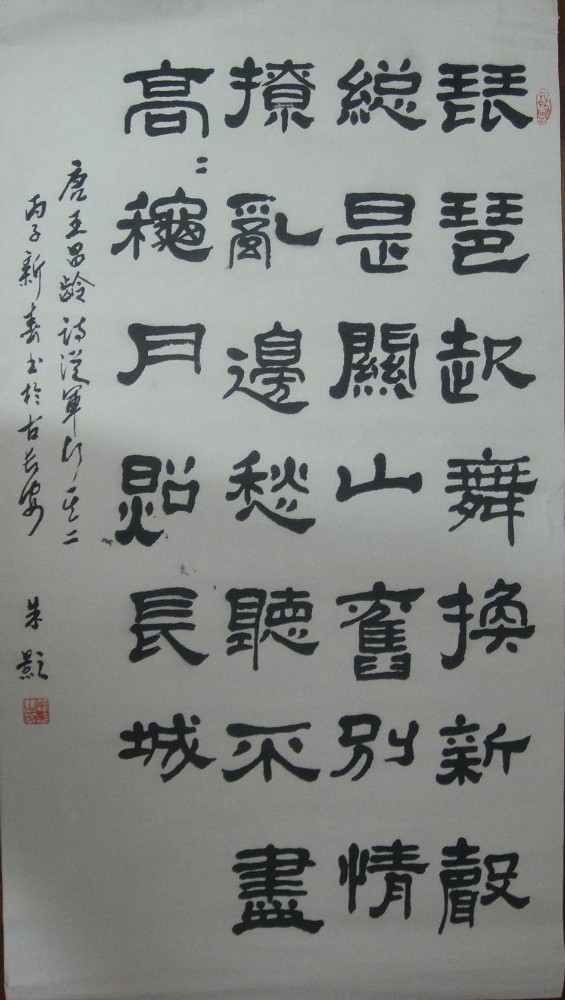 琵琶起舞換新聲
總是關山舊別情
撩亂邊愁聽不盡
高〻穐月照長城
唐王昌齡詩從軍行其二
丙子新春书於古長安 朱影